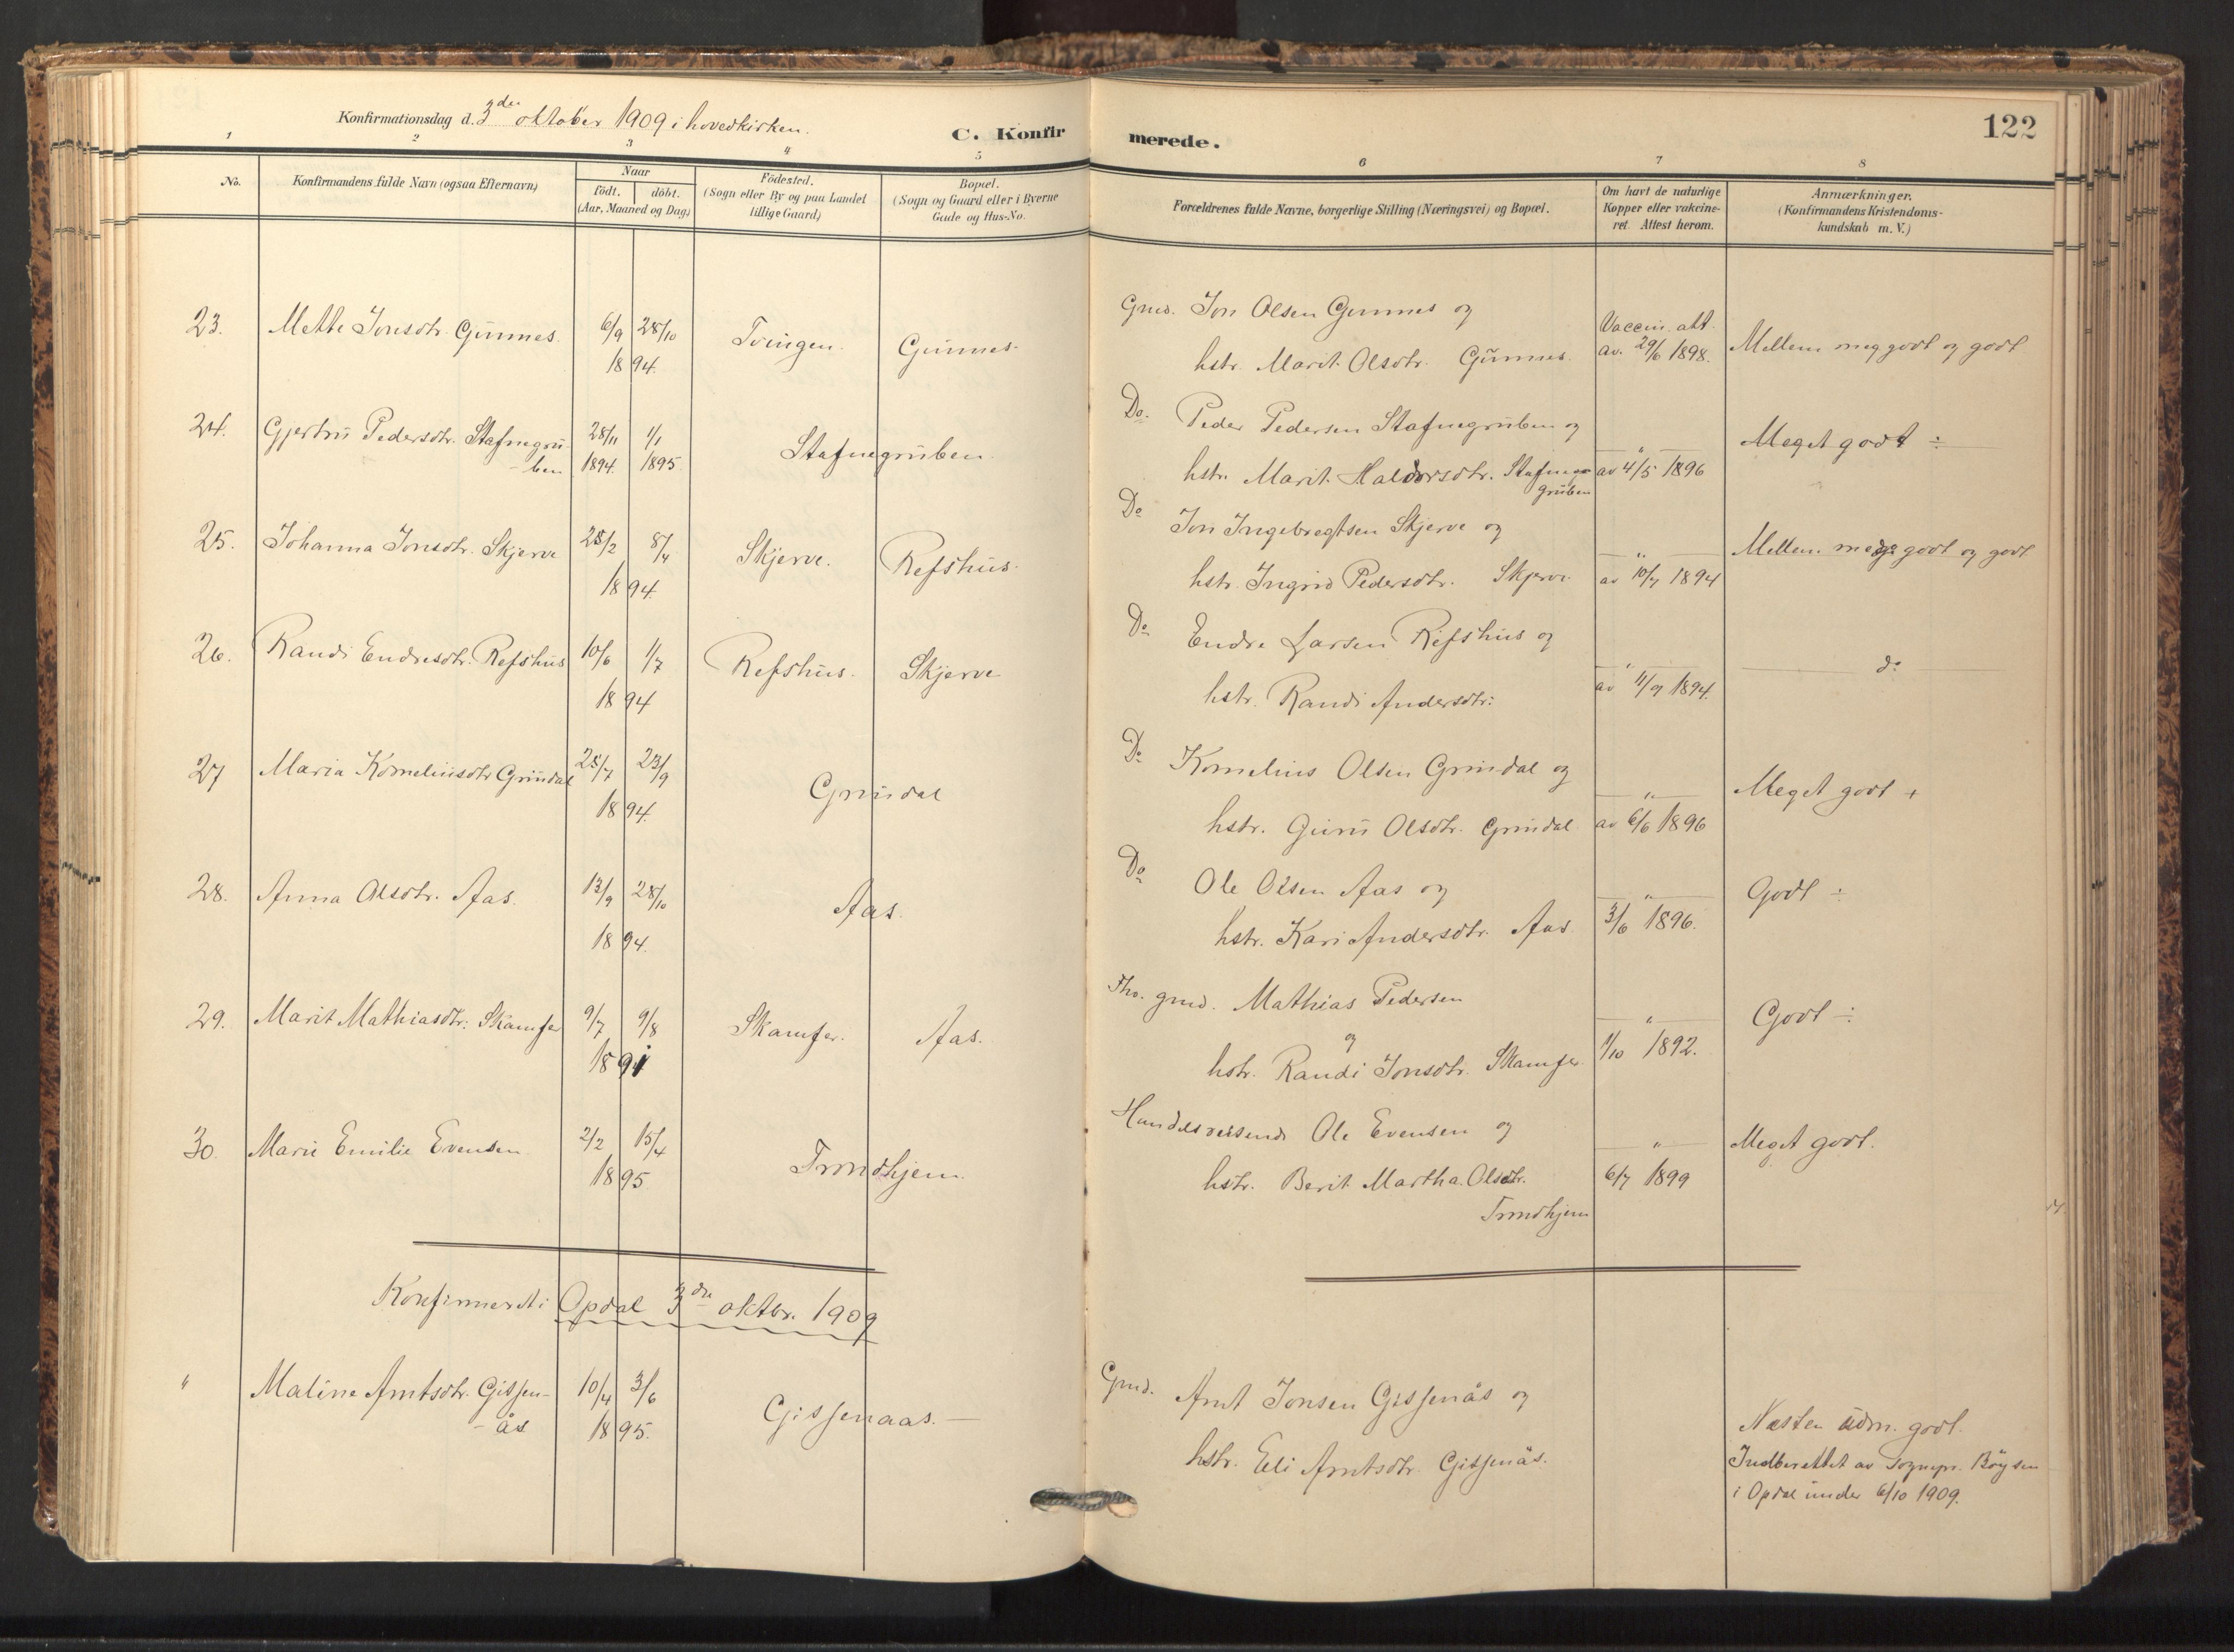 Konfirmationsdag d. 3die oktober 1909 i hovedkirken.
C. Konfirmerede.
122
1 2 3 4 5 6 7 8
No.
Konfirmandens fulde Navn (ogsaa Efternavn)
Naar
födt. döbt.
(Aar, Maaned og Dag)
Födested.
(Sogn eller By og paa Landet
tillige Gaard)
Bopæl.
(Sogn og Gaard eller i Byerne
Gade og Hus-No.
Forældrenes fulde Navne, borgerlige Stilling (Næringsvei) og Bopæl.
Om havt de naturlige
Kopper eller vakcine-
ret. Attest herom.
Anmærkninger.
(Konfirmandens Kristendoms-
kundskab m.V.)
23. Mette Jonsdtr. Gunnes 6/9 28/10 1894. Tvingen. Gunnes.
Gmd. Jon Olsen Gunnes og
hstr. Marit Olsdtr. Gunnes.
Vaccin. att.
av. 29/6 1898.
Mellem meg godt og godt
24. Gjertru Pedersdtr. Stafnegru
- ben
28/11 1894. 1/1 1895. Stafnegruben
Do. Peder Pedersen Stafnegruben og
hstr. Marit Haldorsdtr. Stafne
gruben
" av 4/5 1896
Meget godt ÷
25. Johanna Jonsdtr. Skjerve 28/2 8/4 1894. Skjerve. Refshus.
Do Jon Ingebregtsen Skjerve og
hstr. Ingrid Pedersdtr. Skjerve
" av 10/7 1894
Mellem meget godt og godt
26. Randi Endresdtr. Refshus 10/6 1/7 1894 Refshus. Skjerve
Do Endre Larsen Refshus og
hstr. Randi Andersdtr:
" av 11/9 1894.
do
27 Maria Korneliusdtr Grindal 25/7 23/9 1894. Grindal
Do Kornelius Olsen Grindal og
hstr. Guru Olsdtr. Grindal
" av 6/6 1896
Meget godt +
28. Anna Olsdtr. Aas. 13/9 28/10 1894. Aas.
Do Ole Olsen Aas og
hstr. Kari Andersdtr. Aas.
" 3/6 1896.
Godt ÷
29. Marit Mathiasdtr: Skamfer 9/7 9/8 1891 Skamfer. Aas.
Fhv. gmd. Mathias Pedersen
og
hstr. Randi Jonsdtr. Skamfer
" 1/10 1892.
Godt ÷
30. Marie Emilie Evensen 2/2 15/4 1895 Trondhjem.
Handelsreisende Ole Evensen og
hstr. Berit Martha Olsdtr.
Trondhjem
" 6/7 1899
Meget godt.
Konfirmeret i Opdal 3die oktbr. 1909
" Maline Arntsdtr. Gissen-
- ås
10/4 3/6 1895. Gissenaas. —
Gmd. Arnt Jonsen Gissenås og
hstr. Eli Arntsdtr. Gissenås.
Næsten udm. godt.
Indberettet av sognepr. Böysen
i Opdal under 6/10 1909.